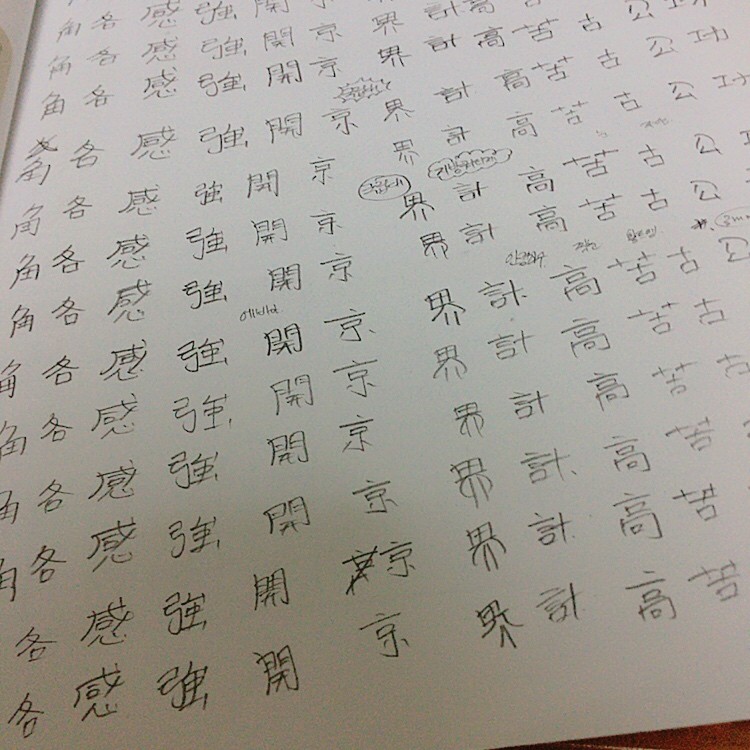 角 各 感 強 開 京
角 各 感 強 開 京 界 計 高
角 各 感 強 開 京 界 計 高 苦 古 公 功
角 各 感 強 開 京 界 計 高 苦 古 公 功
角 各 感 強 開 京 界 計 高 苦 古 公
角 各 感 強 開 京 界 計 高 苦 古 公
角 各 感 強 開 京 界 計 高 苦 古 公
角 各 感 強 開 京 界 計 高 苦 古
角 各 感 強 開 京 界 計 高 苦 古
角 各 感 強 開 京 界 計 高 苦 古
角 各 感 強 開 京 界 計 高 苦
各 感 強 開 京 界 計 高 苦
各 感 強 開 京 界 計 高 苦